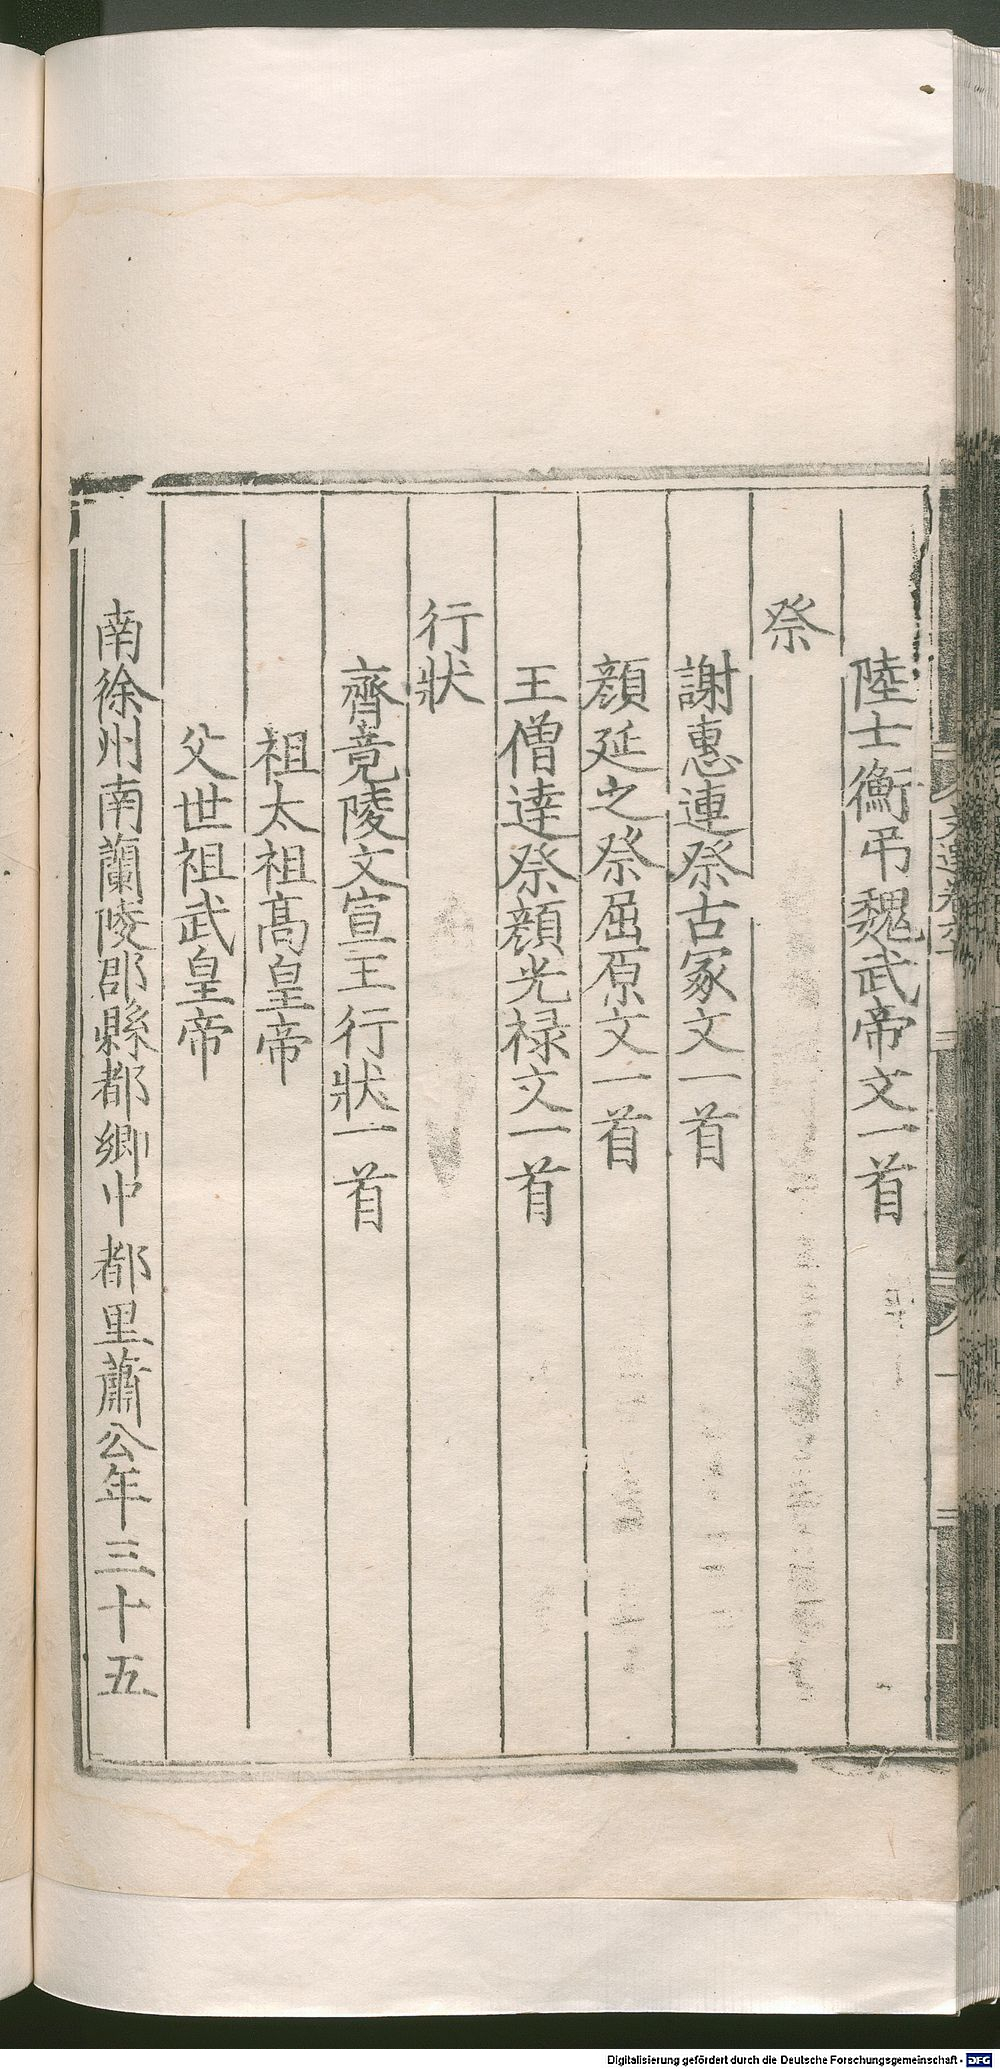 陸士衡弔魏武帝文一首
祭
謝惠連祭古冢文一首
顔延之祭屈原文一首
王僧達祭顔光禄文一首
行狀
齊竟陵文宣王行狀一首
祖太祖髙皇帝
父世祖武皇帝
南徐州南蘭陵郡縣都鄉中都里蕭公年三十五
Digitalisierung gefördert durch die Deutsche Forschungsgemeinschaft - DFG